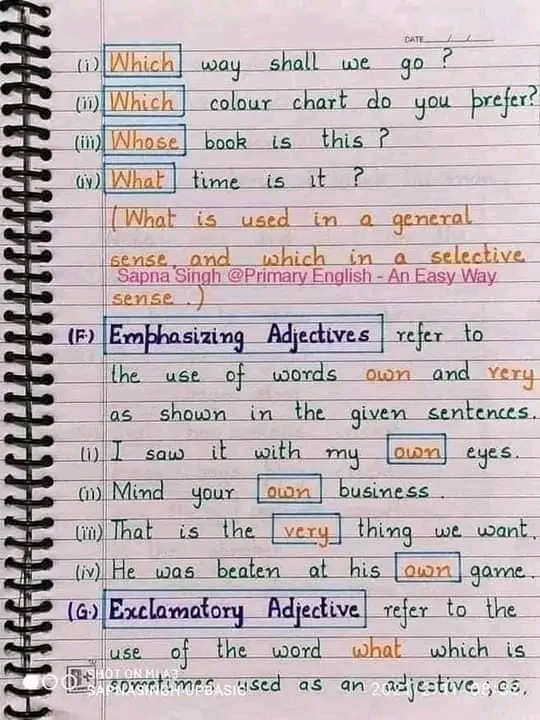 DATE
(i) Which way shall we go ?
(ii) Which colour chart do you prefer?
(iii) Whose book is this ?
(iv) What time is it ?
(What is used in a general
sense and which in a selective
Sapna Singh @Primary English - An Easy Way
sense .)
(F) Emphasizing Adjectives refer to
the use of words own and very
as shown in the given sentences.
(i) I saw it with my own eyes.
(ii) Mind your own business.
(iii) That is the very thing we want.
(iv) He was beaten at his own game.
(G) Exclamatory Adjective refer to the
use of the word what which is
SHOT ON MI A3
sometimes used as an adjective as.
SAPNASINGH UPBASIC